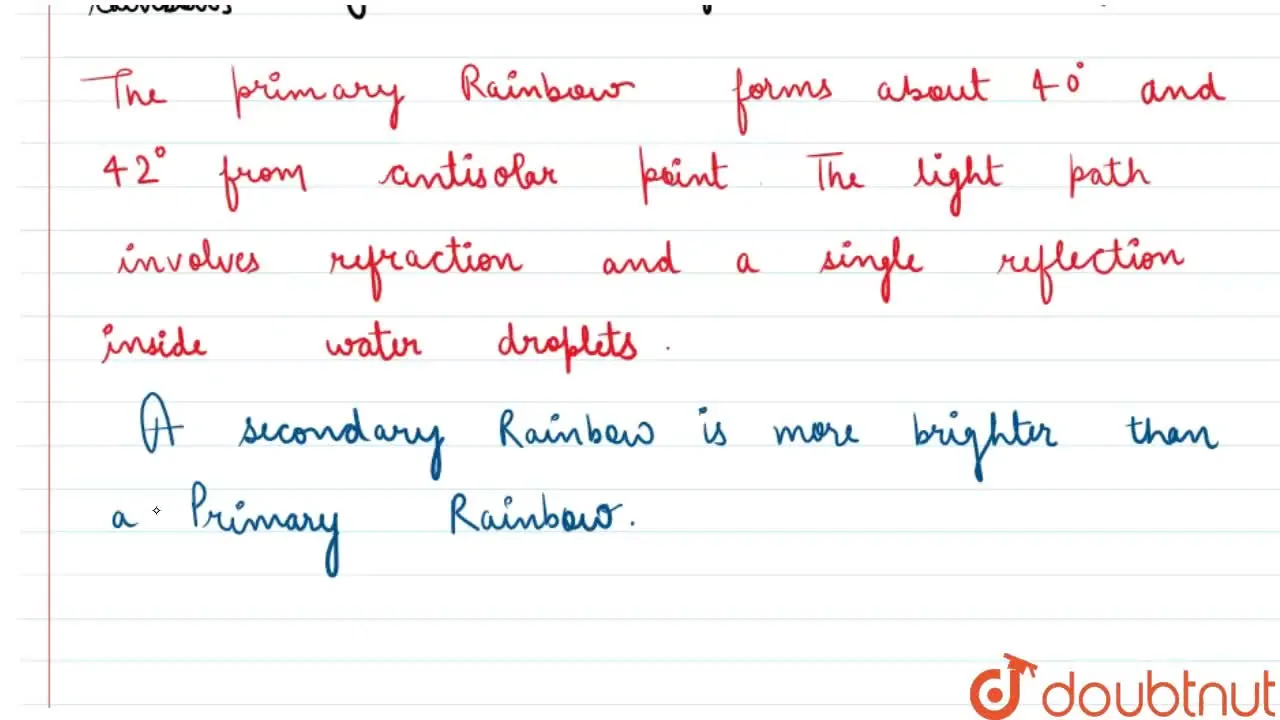 The primary Rainbow forms about 40° and
42° from antisolar point. The light path
involves refraction and a single reflection
inside water droplets.
A secondary Rainbow is more brighter than
a Primary Rainbow.
doubtnut